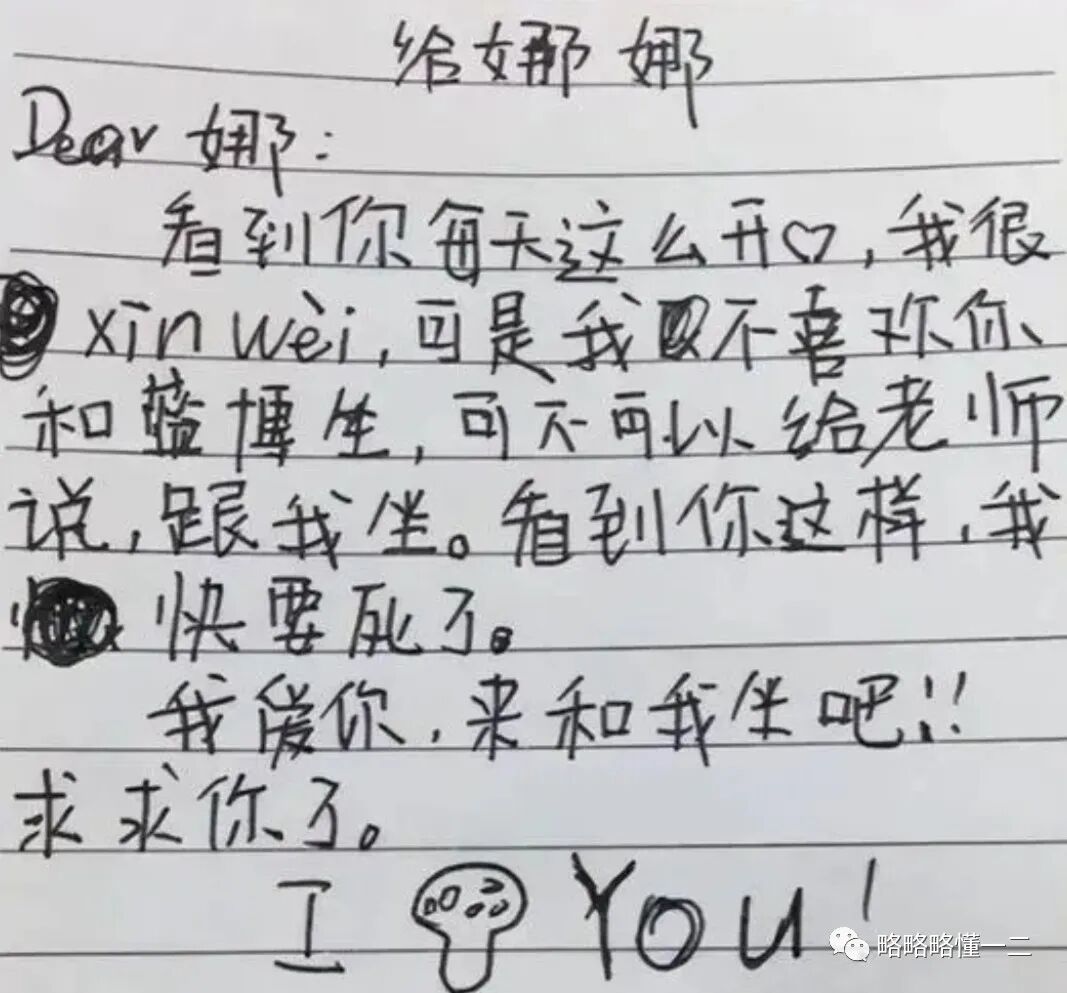 给娜娜
Dear 娜:
看到你每天这么开♡,我很
xin wèi,可是我不喜欢你
和蓝博坐,可不可以给老师
说,跟我坐。看到你这样,我
快要死了。
我爱你,来和我坐吧!!
求求你了。
I You!
略略略懂一二